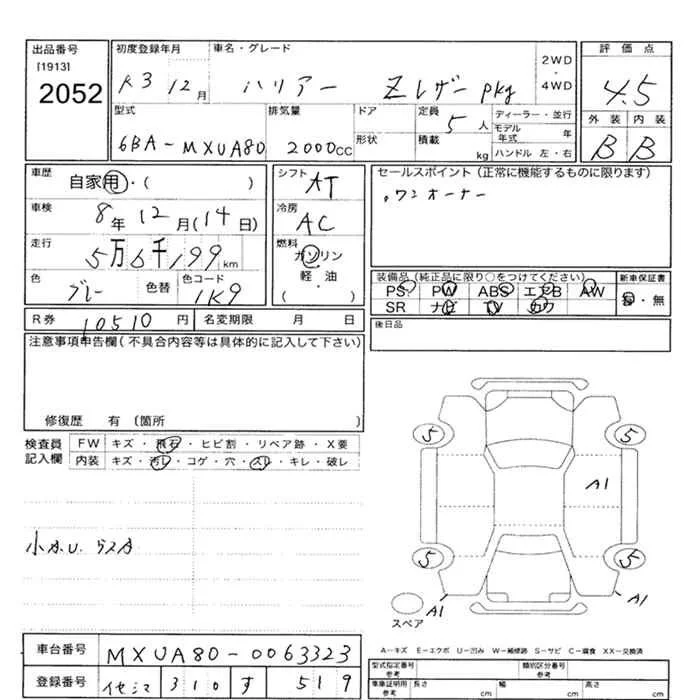 出品番号 初度登録年月 車名・グレード 2WD・4WD 評価点
[1913]
2052 R3 12月 ハリアー Zレザーpkg 4.5
型式 排気量 ドア 定員 5人 ディーラー・並行 外装 内装
6BA-MXUA80 2000CC 形状 積載 kg モデル年式 年 B B
ハンドル 左・右
車歴 自家用・( ) シフト AT セールスポイント(正常に機能するものに限ります)
車検 8年12月(14日) 冷房 AC ・ワンオーナー
走行 5万6千199km 燃料 ガソリン 軽・油 ( )
色 グレー 色替 色コード 1K9
装備品(純正品に限り○をつけてください) 新車保証書
PS PW ABS エアB AW 有・無
SR ナビ TV カワ
R券 10510円 名変期限 月 日 後日品
注意事項申告欄(不具合内容等は具体的に記入して下さい)
修復歴 有(箇所 )
検査員記入欄 FW キズ・飛石・ヒビ割・リペア跡・X要
内装 キズ・汚レ・コゲ・穴・スレ・キレ・破レ
5 5
A1
小A.U.
5 5
A1 A1
スペア
A-キズ E-エクボ U-凹み W-補修跡 S-サビ C-腐食 XX-交換済
車台番号 MXUA80-0063323
登録番号 310 す 519
型式指定番号 参考 類別区分番号 参考
車庫証明用 参考 長さ cm 幅 cm 高さ cm